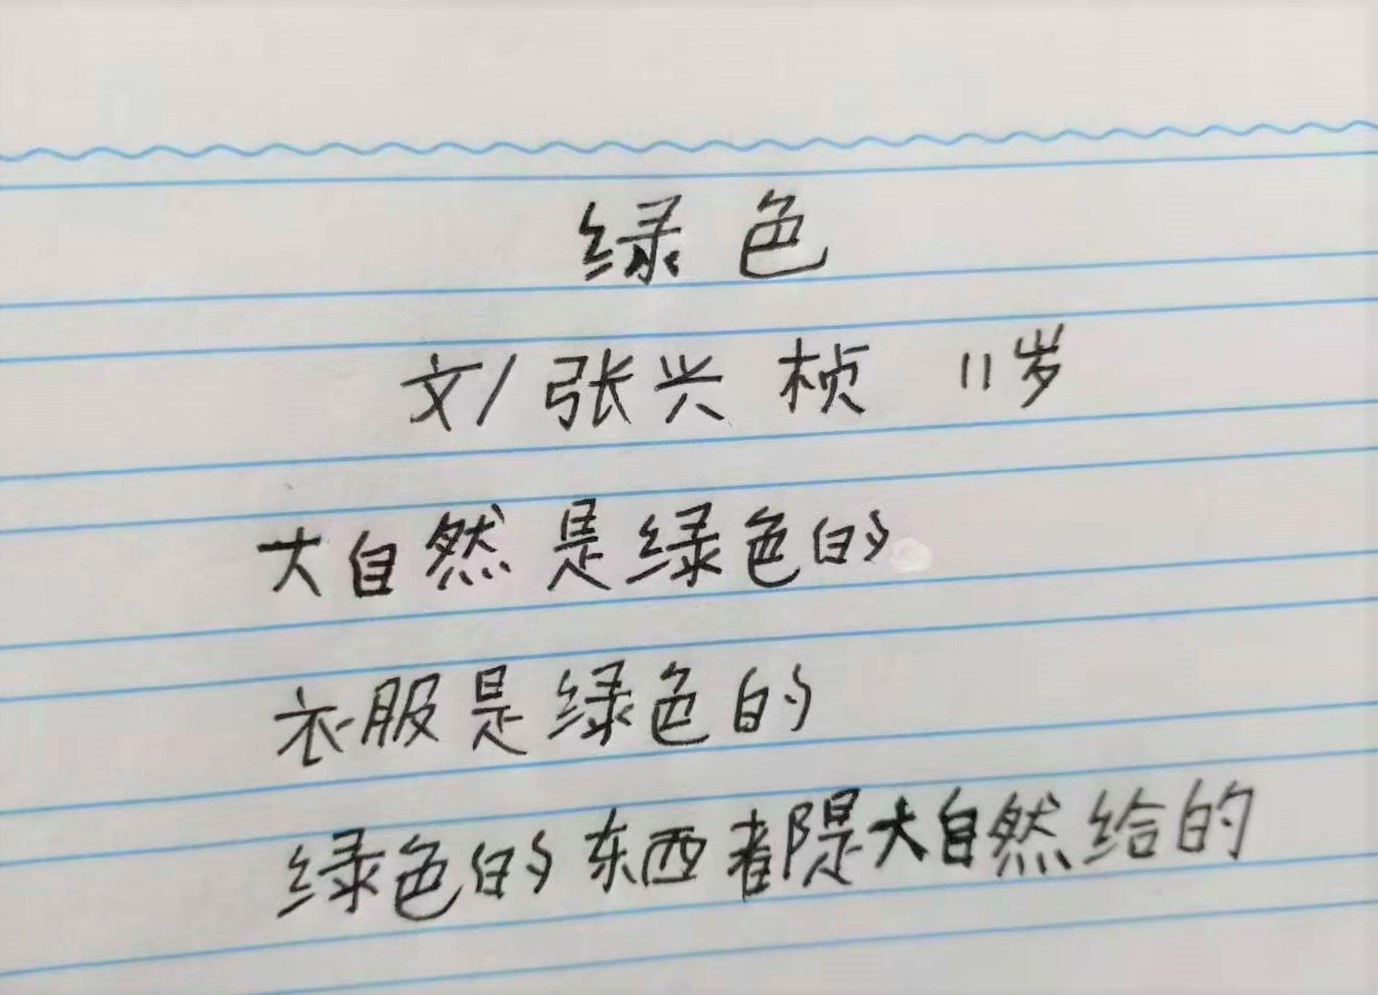 绿色
文/张兴桢 11岁
大自然是绿色的
衣服是绿色的
绿色的东西都是大自然给的